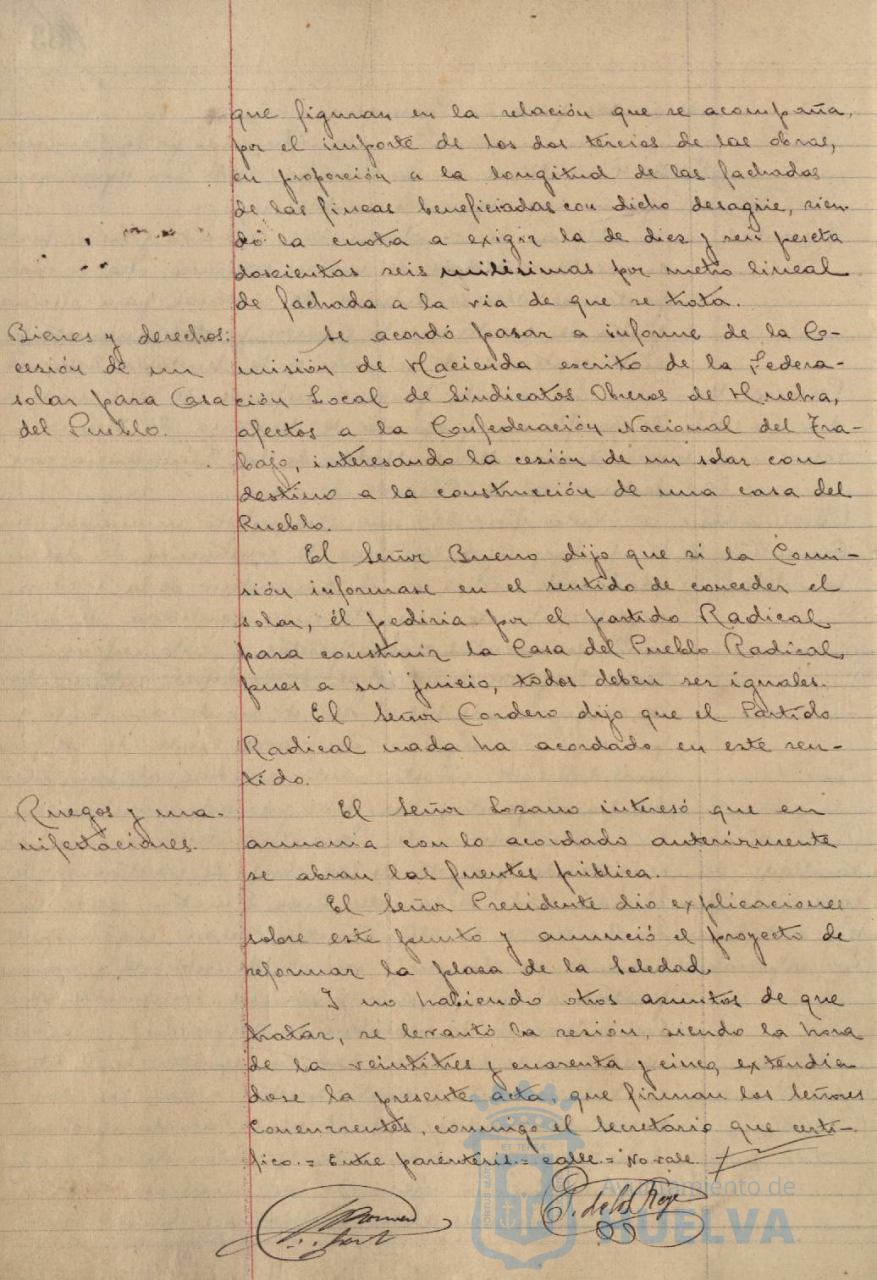 que figuran en la relación que se acompaña,
por el importe de los dos tercios de las obras,
en proporción a la longitud de las fachadas
de las fincas beneficiadas con dicho desagüe, sien-
do la cuota a exigir la de diez y seis peseta
doscientas seis milésimas por metro lineal
de fachada a la via de que se trata.
Bienes y derechos:
cesión de un
solar para Casa
del Pueblo.
Se acordó pasar a informe de la Co-
misión de Hacienda escrito de la Federa-
ción Local de Sindicatos Obreros de Huelva,
afectos a la Confederación Nacional del Tra-
bajo, interesando la cesión de un solar con
destino a la construcción de una casa del
Pueblo.
El Señor Bueno dijo que si la Comi-
sión informase en el sentido de conceder el
solar, él pediria por el partido Radical
para construir la Casa del Pueblo Radical,
pues a su juicio, todos deben ser iguales.
El Señor Cordero dijo que el Partido
Radical nada ha acordado en este sen-
tido.
Ruegos y ma-
nifestaciones.
El Señor Lozano interesó que en
armonia con lo acordado anteriormente
se abran las fuentes pública.
El Señor Presidente dio explicaciones
sobre este punto y anunció el proyecto de
reformar la plaza de la Soledad.
Y no habiendo otros asuntos de que
tratar, se levantó la sesión, siendo la hora
de la veintitres y cuarenta y cinco, extendien
dose la presente acta, que firman los Señores
Concurrentes, conmigo el Secretario que certi-
fico.= Entre paréntesis.= calle.= No vale
Ayuntamiento de
HUELVA